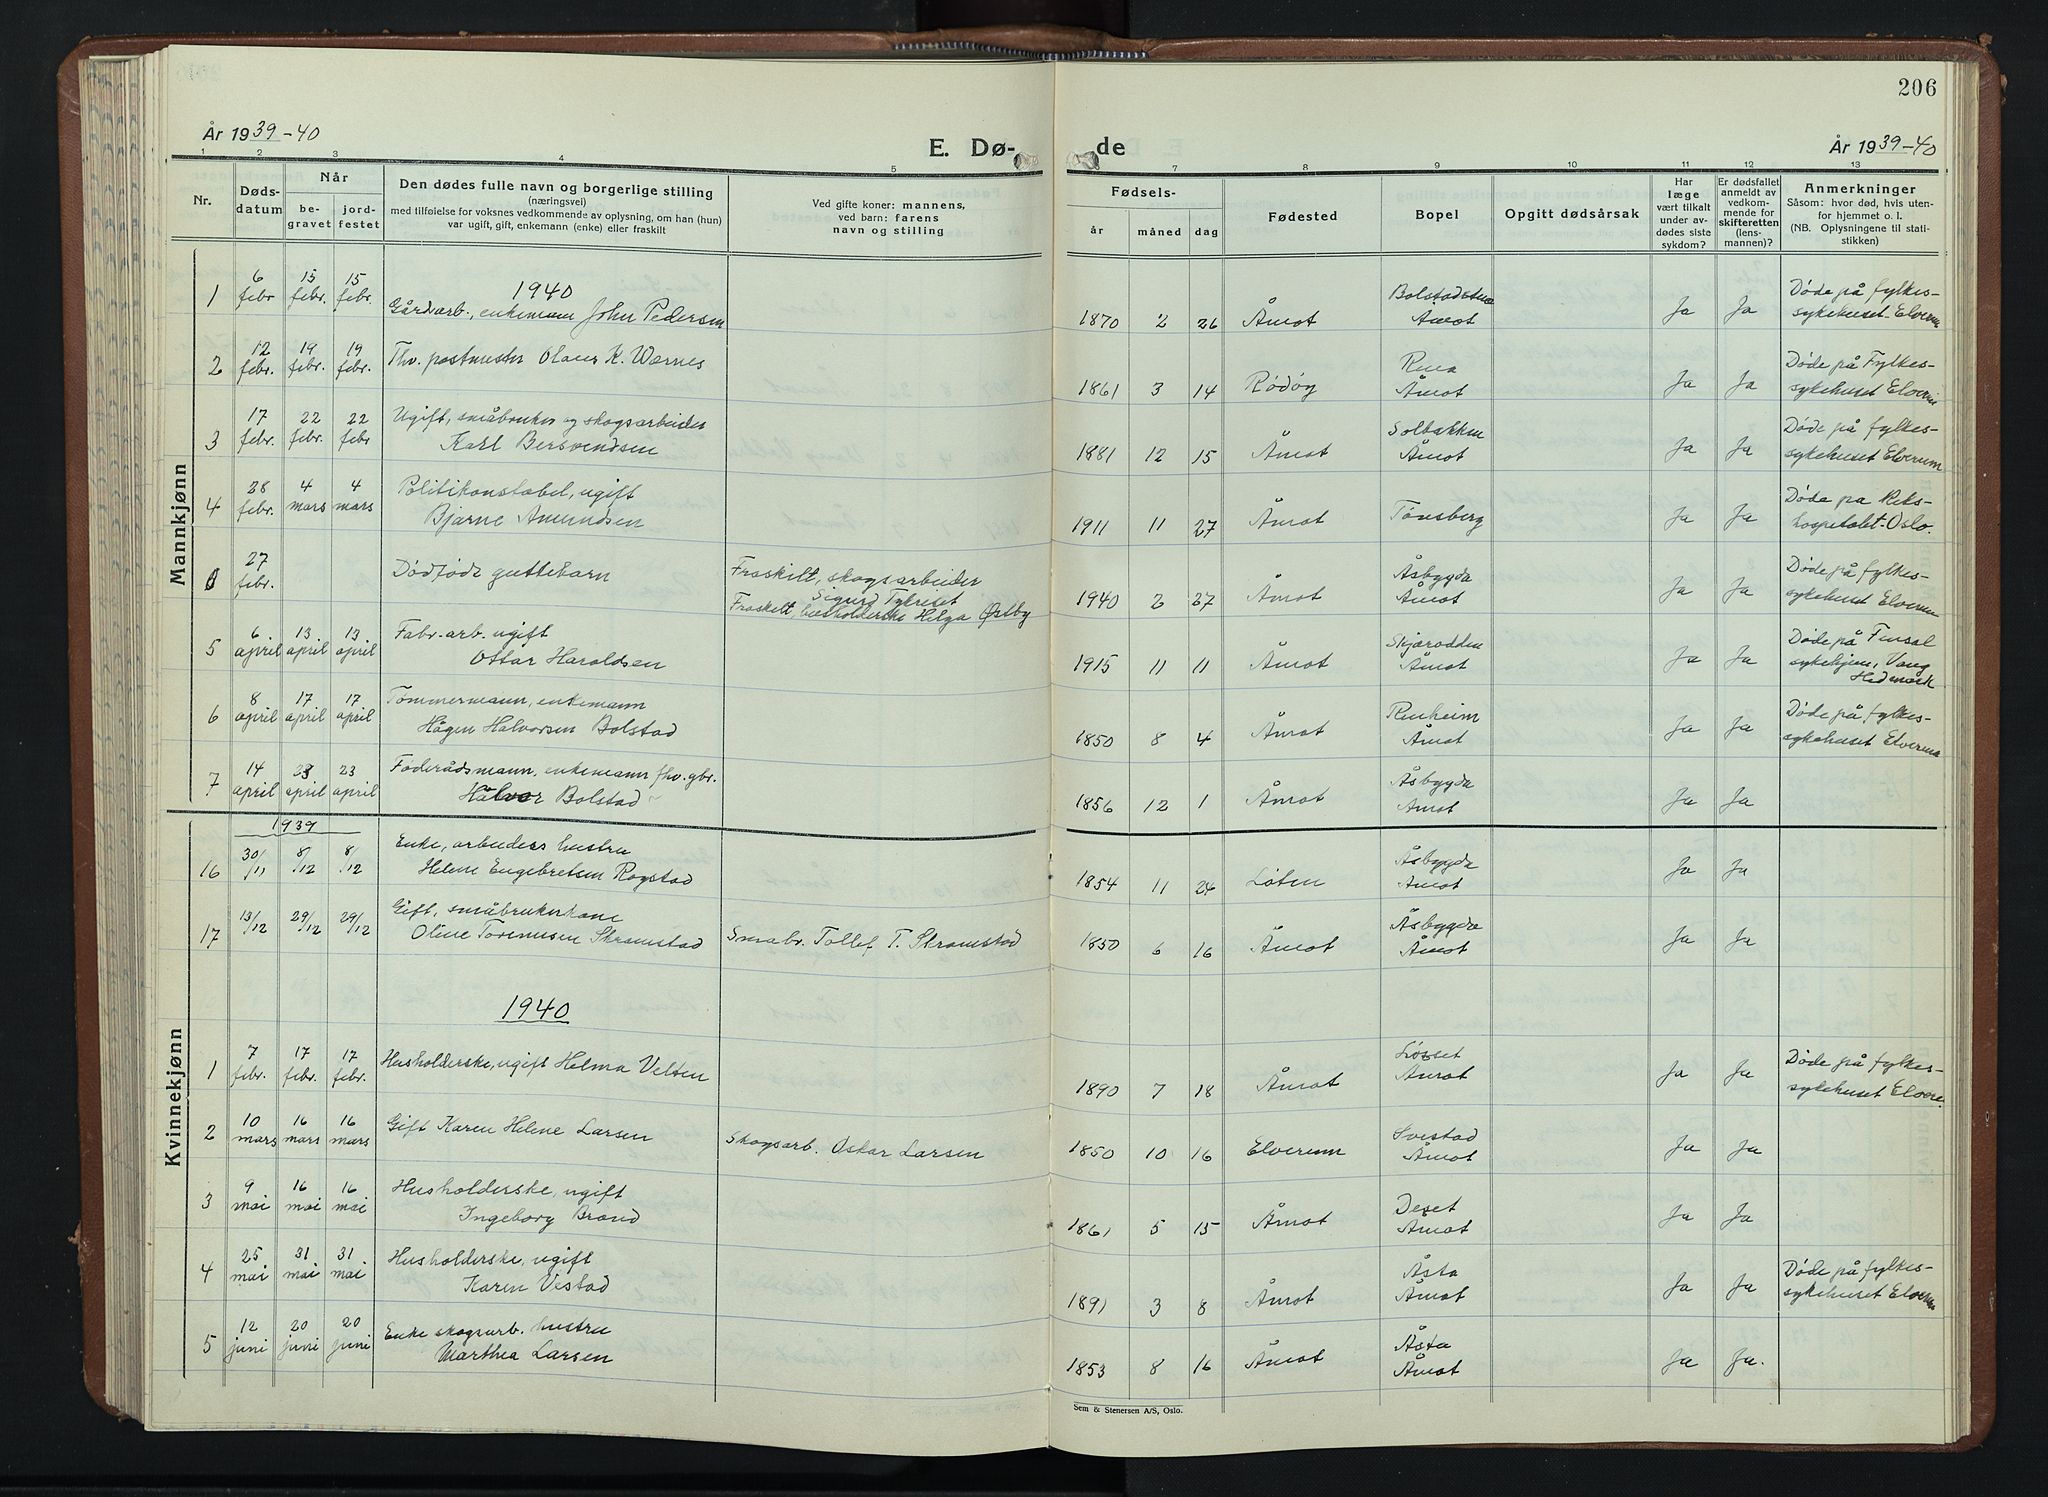 206
År 1939-40
E. Dø-
de
År 1939-40
1 2 3 4 5 6 7 8 9 10 11 12 13
Nr.
Døds-
datum
Når
be-
gravet
jord-
festet
Den dødes fulle navn og borgerlige stilling
(næringsvei)
med tilføielse for voksnes vedkommende av oplysning, om han (hun)
var ugift, gift, enkemann (enke) eller fraskilt
Ved gifte koner: mannens,
ved barn: farens
navn og stilling
Fødsels-
år måned dag
Fødested
Bopel
Opgitt dødsårsak
Har
læge
vært tilkalt
under av-
dødes siste
sykdom?
Er dødsfallet
anmeldt av
vedkom-
mende for
skifteretten
(lens-
mannen)?
Anmerkninger
Såsom: hvor død, hvis uten-
for hjemmet o. l.
(NB. Oplysningene til stati-
stikken)
Mannkjønn
1940
1 6 febr 15 febr. 15 febr. Gårdarb., enkemann John Pedersen 1870 2 26 Åmot Bolstadstua Åmot Ja Ja Døde på fylkes-
sykehuset Elverum
2 12 febr. 19 febr. 19 febr. Fhv. postmester Olaus K. Wærnes 1861 3 14 Rødøy Rena Åmot Ja Ja Døde på Fylkes-
sykehuset Elverum
3 17 febr. 22 febr. 22 febr Ugift, småbruker og skogsarbeider
Karl Bersvendsen 1881 12 15 Åmot Solbakken Åmot Ja Ja Døde på fylkes-
sykehuset Elverum
4 28 febr. 4 mars 4 mars Politikonstabel, ugift
Bjarne Amundsen 1911 11 27 Åmot Tønsberg Ja Ja Døde på Riks-
hospitalet-Oslo.
27 febr. Dødfødt guttebarn Fraskilt, skogsarbeider
Sigurd Tykeset
Fraskilt, husholderske Helga Østby 1940 2 27 Åmot Åsbygda Åmot Ja Ja Døde på fylkes-
sykehuset Elverum
5 6 april 13 april 13 april Fabr.arb. ugift
Ottar Haraldsen 1915 11 11 Åmot Skjærodden Åmot Ja Ja Døde på Finsal
sykehjem, Vang
Hedmark
6 8 april 17 april 17 april Tømmermann, enkemann
Hågen Halvorsen Bolstad 1850 8 4 Åmot Renheim Åmot Ja Ja Døde på fylkes-
sykehuset Elverum
7 14 april 23 april 23 april Føderådsmann, enkemann fhv. gbr.
Halvor Bolstad 1856 12 1 Åmot Åsbygda Åmot Ja Ja
Kvinnekjønn
1939
16 30/11 8/12 8/12 Enke, arbeiders hustru
Helene Engebretsen Rogstad 1854 11 24 Løten Åsbygda Åmot Ja Ja
17 13/12 29/12 29/12 Gift, småbrukerkone
Oline Torimusen Stramstad Småbr. Tollef T. Stramstad 1850 6 16 Åmot Åsbygda Åmot Ja Ja
1940
1 7 febr. 17 febr. 17 febr. Husholderske, ugift Helma Velten 1890 7 18 Åmot Løsset Åmot Ja Ja Døde på fylkes-
sykehuset Elver.
2 10 mars 16 mars 16 mars Gift Karen Helene Larsen Skogsarb. Oskar Larsen 1850 10 16 Elverum Svestad Åmot Ja Ja
3 9 mai 16 mai 16 mai Husholderske, ugift
Ingeborg Brænd 1861 5 15 Åmot Deset Åmot Ja Ja
4 25 mai 31 mai 31 mai Husholderske, ugift
Karen Vestad 1891 3 8 Åmot Åsta Åmot Ja Ja Døde på fylkes-
sykehuset Elverum
5 12 juni 20 juni 20 juni Enke skogsarb. hustru
Marthea Larsen 1853 8 16 Åmot Åsta Åmot Ja Ja.
Sem & Stenersen A/S, Oslo.